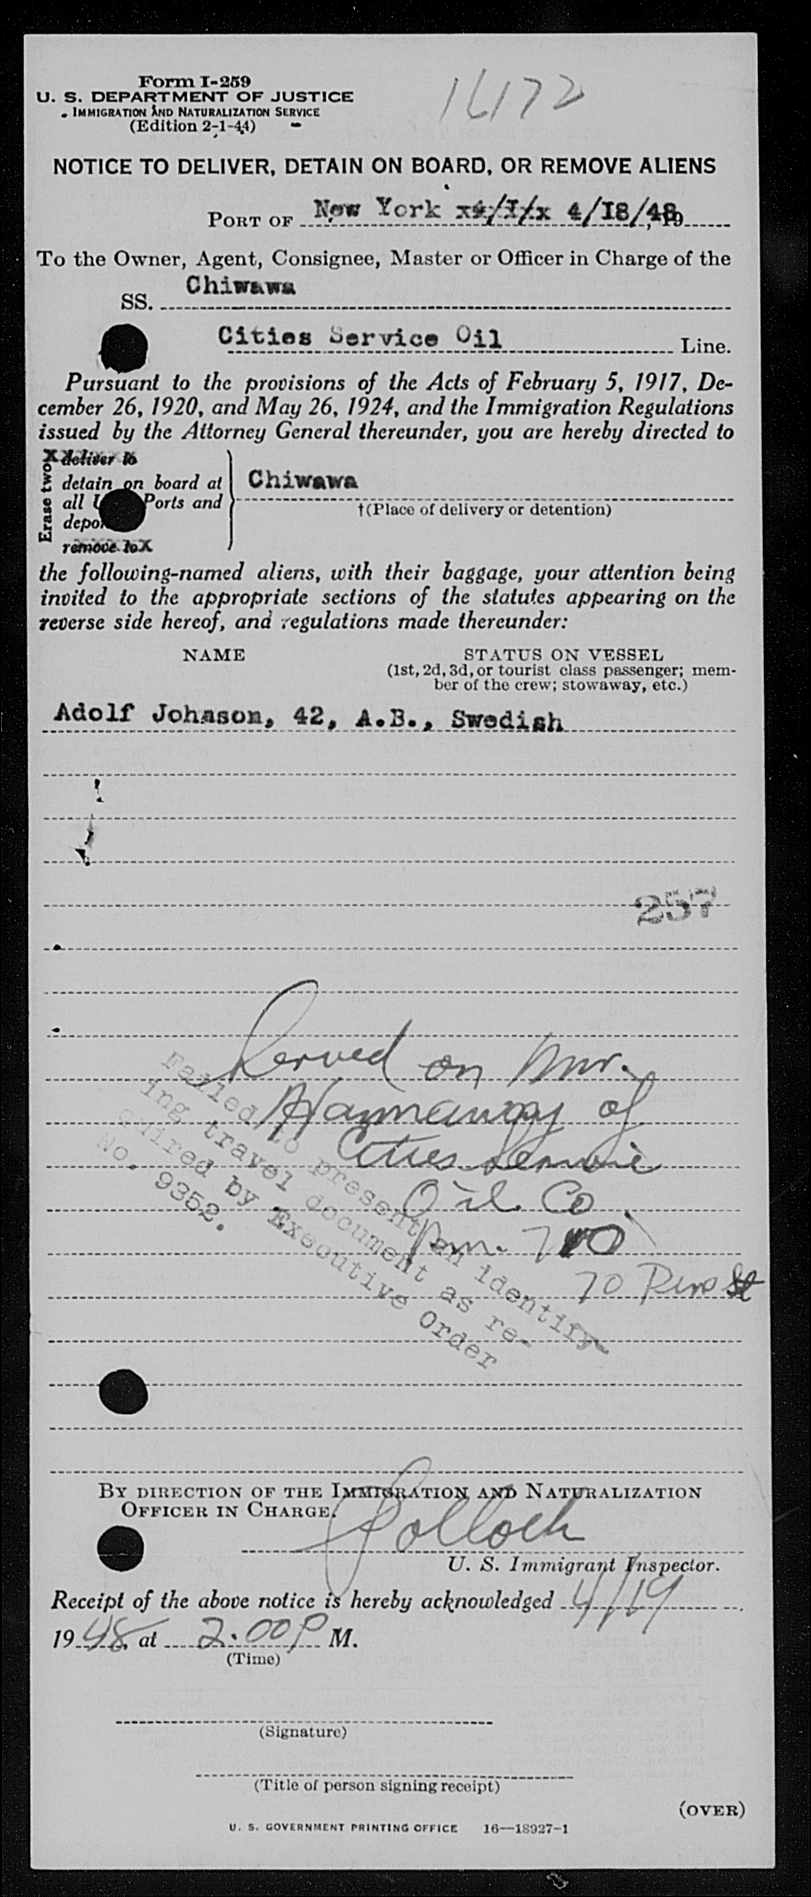 Form I-259
16172
U. S. DEPARTMENT OF JUSTICE
IMMIGRATION AND NATURALIZATION SERVICE
(Edition 2-1-44)
NOTICE TO DELIVER, DETAIN ON BOARD, OR REMOVE ALIENS
PORT OF New York x4/1/x 4/18/48, 19
To the Owner, Agent, Consignee, Master or Officer in Charge of the
SS. Chiwawa
Cities Service Oil Line.
Pursuant to the provisions of the Acts of February 5, 1917, De-
cember 26, 1920, and May 26, 1924, and the Immigration Regulations
issued by the Attorney General thereunder, you are hereby directed to
Erase two
deliver to
detain on board at
all U Ports and
depor
remove to
Chiwawa
†(Place of delivery or detention)
the following-named aliens, with their baggage, your attention being
invited to the appropriate sections of the statutes appearing on the
reverse side hereof, and regulations made thereunder:
NAME STATUS ON VESSEL
(1st, 2d, 3d, or tourist class passenger; mem-
ber of the crew; stowaway, etc.)
Adolf Johnson, 42, A.B., Swedish
257
Served on Mr.
Hannaway of
Cities Service
Oil Co.
Rm. 700
70 Pine St
Failed to present an identify-
ing travel document as re-
quired by Executive Order
No. 9352.
BY DIRECTION OF THE IMMIGRATION AND NATURALIZATION
OFFICER IN CHARGE.
Pollock
U. S. Immigrant Inspector.
Receipt of the above notice is hereby acknowledged 4/19
1948, at 2:00 P M.
(Time)
(Signature)
(Title of person signing receipt)
(OVER)
U. S. GOVERNMENT PRINTING OFFICE 16—18927-1